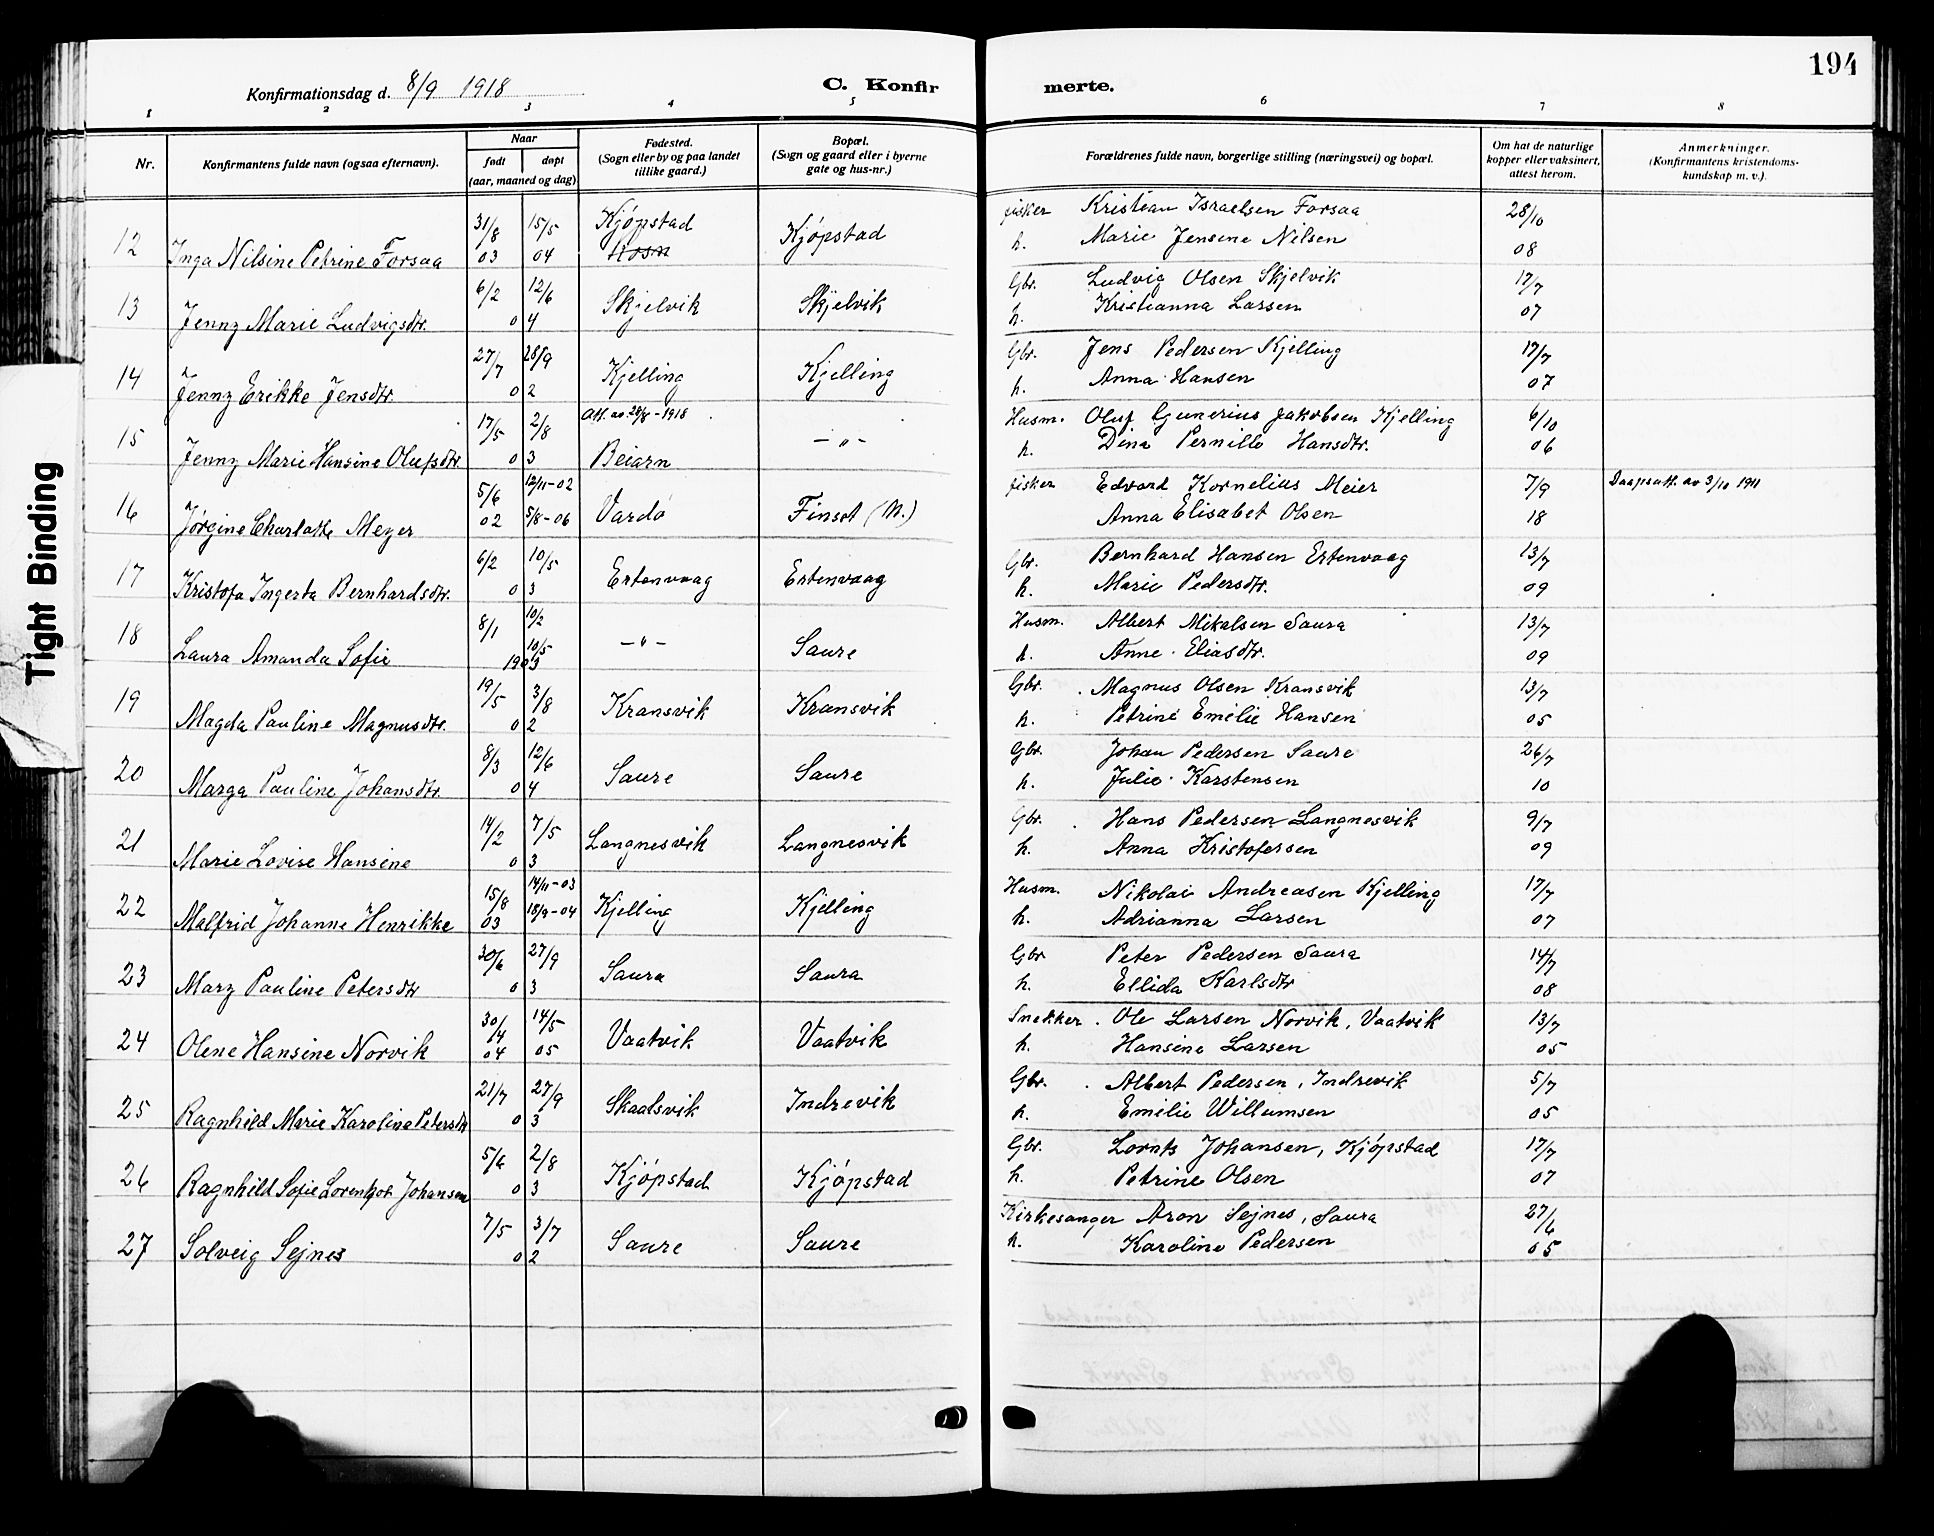 194
Konfirmationsdag d. 8/9 1918
C. Konfir
merte.
1 2 3 4 5 6 7 8
Nr.
Konfirmantens fulde navn (ogsaa efternavn).
Naar
født
døpt
(aar, maaned og dag)
Fødested.
(Sogn eller by og paa landet
tillike gaard.)
Bopæl.
(Sogn og gaard eller i byerne
gate og hus-nr.)
Forældrenes fulde navn, borgerlige stilling (næringsvei) og bopæl.
Om hat de naturlige
kopper eller vaksinert,
attest herom.
Anmerkninger.
(Konfirmantens kristendoms-
kundskap m. v.)
Tight Binding
31/8 15/5 Kjøpstad Kjøpstad fisker Kristian Israelsen Forsaa 28/10
12 Inga Nilsine Petrine Forsaa 03 04 h. Marie Jensene Nilsen 08
6/2 12/6 Skjelvik Skjelvik Gbr. Ludvig Olsen Skjelvik 17/7
13 Jenny Marie Ludvigsdtr. 0 4 h. Kristianna Larsen 07
27/7 28/9 Kjelling Kjelling Gbr. Jens Pedersen Kjelling 17/7
14 Jenny Erikke Jensdtr. 0 2 h. Anna Hansen 07
17/5 2/8 Att. av 28/8 - 1918 Husm. Oluf Gunerius Jakobsen Kjelling 6/10
15 Jenny Marie Hansine Olufsdtr. 0 3 Beiarn - " - h. Dina Pernille Hansdtr. 06
5/6 12/11-02 Vardø Finset (M.) fisker Edvard Kornelius Meier 7/9 Daapsatt. av 3/10 1911
16 Jørgine Charlotte Meyer 02 5/8-06 Anna Elisabet Olsen 18
6/2 10/5 Ertenvaag Ertenvaag Gbr. Bernhard Hansen Ertenvaag 13/7
17 Kristofa Ingerta Bernhardsdtr. 0 3 h. Marie Pedersdtr. 09
8/1 10/2 - " - Saure Husm. Albert Mikalsen Saura 13/7
18 Laura Amanda Sofie 10/5 1903 h. Anne Eliasdtr. 09
19/5 3/8 Kransvik Kransvik Gbr. Magnus Olsen Kransvik 13/7
19 Magda Pauline Magnusdtr. 0 2 h. Petrine Emilie Hansen 05
8/3 12/6 Saure Saure Gbr. Johan Pedersen Saure 26/7
20 Marga Pauline Johansdtr. 0 4 h. Julie Karstensen 10
14/2 7/5 Langnesvik Langnesvik Gbr. Hans Pedersen Langnesvik 9/7
21 Marie Lovise Hansine 0 3 h. Anna Kristofersen 09
15/8 14/11-03 Kjelling Kjelling Husm. Nikolai Andreasen Kjelling 17/7
22 Malfrid Johanne Henrikke 03 18/9-04 h. Adrianna Larsen 07
30/6 27/9 Saura Saura Gbr Peter Pedersen Saura 14/7
23 Mary Pauline Petersdtr 0 3 h. Ellida Karlsdtr 08
30/14 14/5 Vaatvik Vaatvik Snekker Ole Larsen Norvik, Vaatvik 13/7
24 Olene Hansine Norvik 04 05 h. Hansine Larsen 05
21/7 27/9 Skaalsvik Indrevik Gbr. Albert Pedersen, Indrevik 5/7
25 Ragnhild Marie Karoline Petersdtr 0 3 h. Emilie Willumsen 05
5/6 2/8 Kjøpstad Kjøpstad Gbr. Lornts Johansen, Kjøpstad 17/7
26 Ragnhild Sofie Johansen 0 3 h. Petrine Olsen 07
7/5 3/7 Saure Saure Kirkesanger Aron Sejnes, Saura 27/6
27 Solveig Sejnes 0 2 h. Karoline Pedersen 05